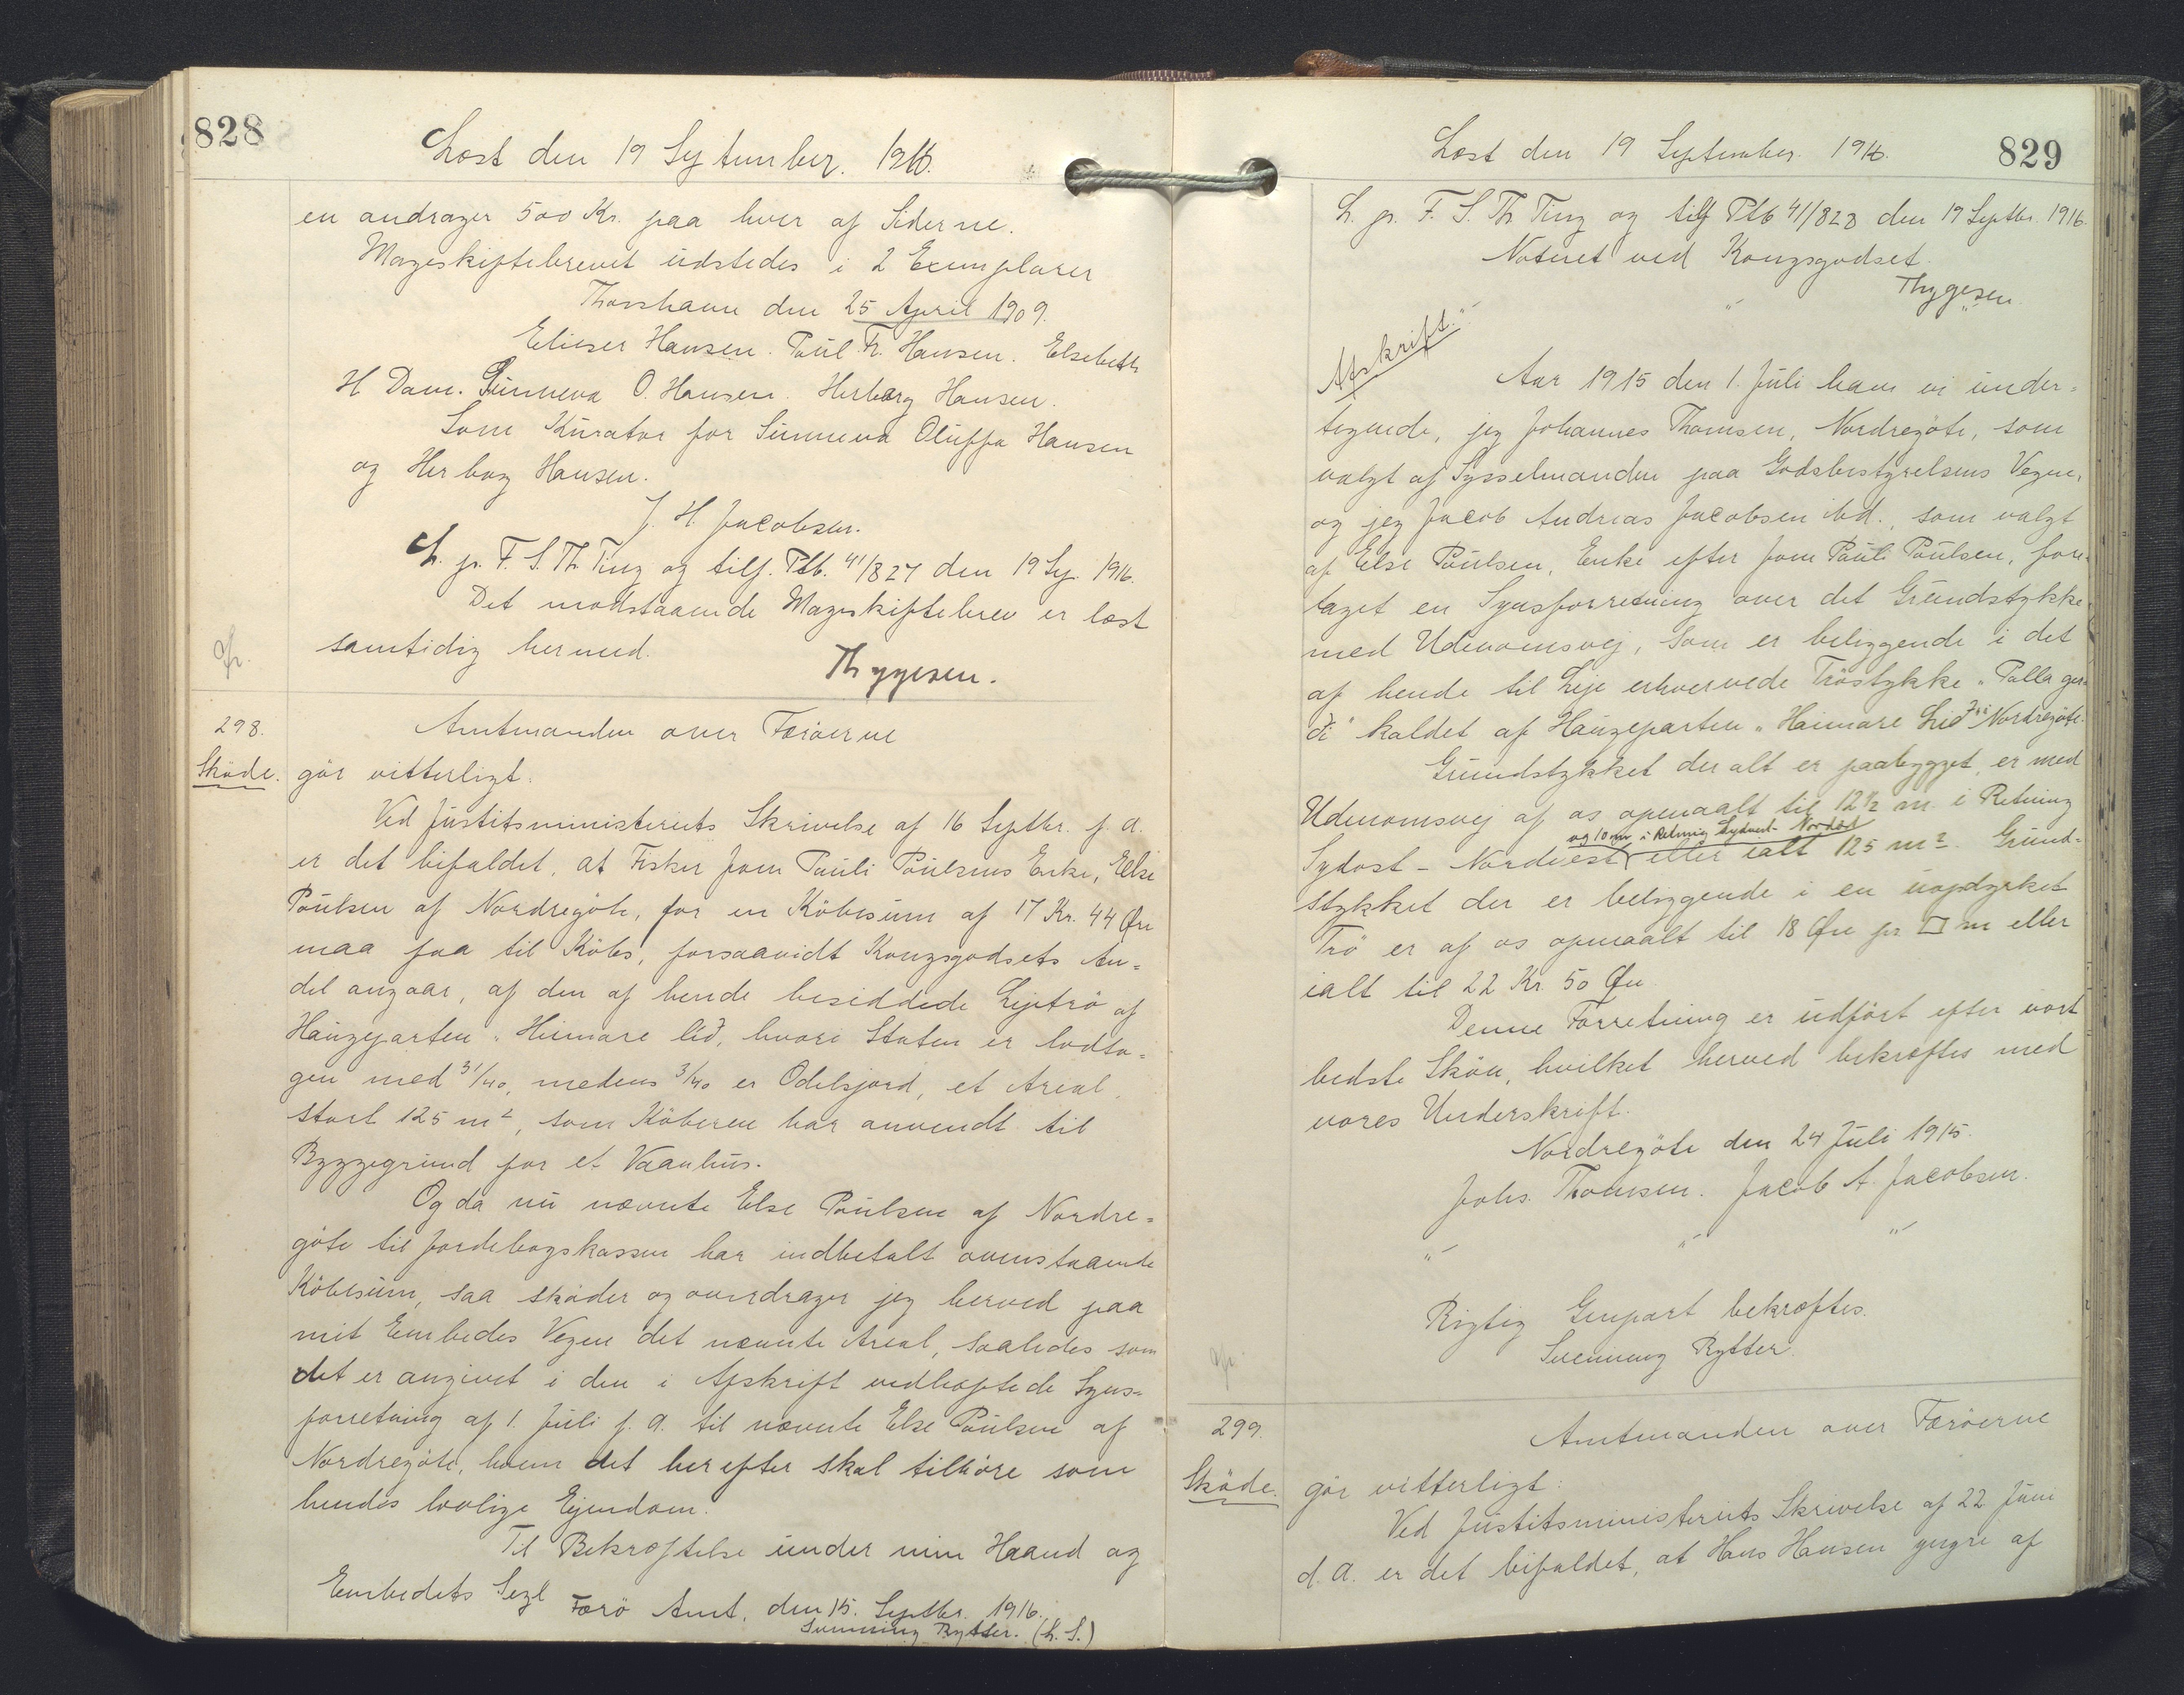 828
Læst den 19 September. 1916.
en andrager 500 Kr. paa hver af Siderne.
Mageskiftebrevet udstedes i 2 Exemplarer
Thorshavn den 25 April 1909.
Elieser Hansen. Poul Fr. Hansen. Elsebeth
H Dam. Sunneva O. Hansen. Herborg Hansen.
Som Kurator for Sunneva Oluffa Hansen
og Herborg Hansen.
J. H. Jacobsen.
L. p. F. S. Th. Ting og tilf. Ptb. 41/827 den 19 Sp. 1916.
Det modstaaende Mageskiftebrev er læst
samtidig hermed.
Thygesen.
298.
Amtmanden over Færøerne
Sköde.
gör vitterligt:
Ved Justitsministeriets Skrivelse af 16 Septbr. f. a.
er det bifaldet, at Fisker Joen Pauli Poulsens Enke, Else
Poulsen af Nordregöte, for en Köbesum af 17 Kr. 44 Øre
maa faa til Købs, forsaavidt Kongsgodsets An-
del angaar, af den af hende besiddede Lejetrö af
Haugeparten "Heimare lid, hvori Staten er lodta-
gen med 31/40, medens 3/40 er Odelsjord, et Areal,
stort 125 m², som Köberen har anvendt til
Byggegrund for et Vaanhus.
Og da nu nævnte Else Poulsen af Nordre-
göte til Jordebogskassen har indbetalt ovenstaaende
Köbesum, saa sköder og overdrager jeg herved paa
mit Embedes Vegne det nævnte Areal, saaledes som
det er angivet i den i Afskrift vedhæftede Syns-
forretning af 1. Juli f. a. til nævnte Else Poulsen af
Nordregöte, hvem det herefter skal tilhöre som
hendes lovlige Ejendom.
Til Bekræftelse under min Haand og
Embedets Segl
Færö Amt, den 15. Septbr. 1916.
Svenning Rytter. (L. S.)
Læst den 19 September. 1916.
829
L. p. F. S. Th Ting og tilf Ptb 41/828 den 19 Septbr. 1916.
Noteret ved Kongsgodset.
Thygesen.
Afskrift.
Aar 1915 den 1. Juli have vi under-
tegnede, jeg Johannes Thomsen, Nordregöte, som
valgt af Sysselmanden paa Godsbestyrelsens Vegne,
og jeg Jacob Andreas Jacobsen ibd., som valgt
af Else Poulsen, Enke efter Joen Pauli Poulsen, fore-
taget en Synsforretning over det Grundstykke
med Udenomsvej, som er beliggende i det
af hende til Leje erhvervede Tröstykke "Palla ger-
di" kaldet af Haugeparten "Haimare Lid" i Nordregöte.
Grundstykket der alt er paabygget, er med
Udenomsvej af os opmaalt til 12½ m. i Retning
og 10 m i Retning Sydvest-Nordøst
Sydost - Nordvest eller ialt 125 m². Grund-
stykket der er beliggende i en uopdyrket
Trö er af os opmaalt til 18 Øre pr □ m eller
ialt til 22 Kr. 50 Øre.
Denne Forretning er udfört efter vort
bedste Skön, hvilket herved bekræftes med
vores Underskrift.
Nordregöte den 24 Juli 1915.
Johs. Thomsen. Jacob A. Jacobsen.
Rigtig Genpart bekræftes.
Svenning Rytter.
299.
Amtmanden over Færöerne
Sköde.
gör vitterligt:
Ved Justitsministeriets Skrivelse af 22 Juni
d. a. er det bifaldet, at Hans Hansen yngre af